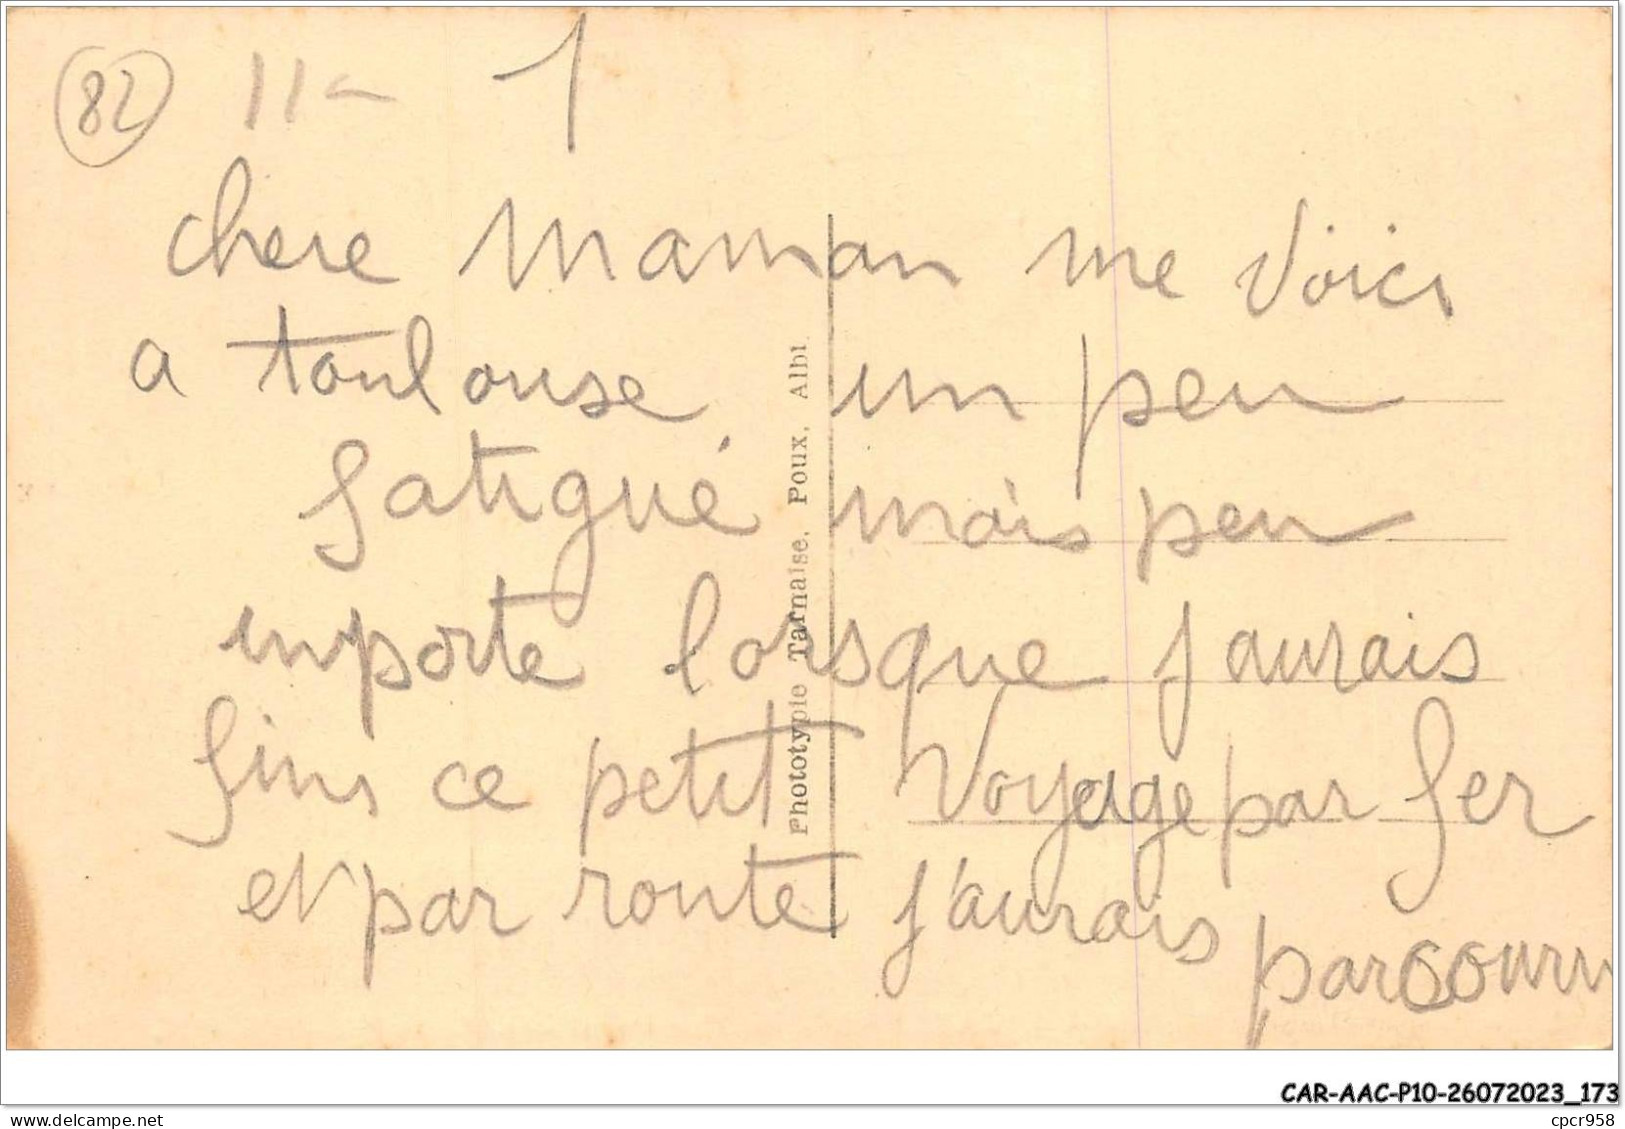 82 11- 1
chere Maman me Voici
a toulouse un peu
fatigué mais peu
importe lorsque j aurais
finis ce petit Voyage par fer
et par route j'aurais parcouru
Phototypie Tarnaise. Poux, Albi
CAR-AAC-P10-26072023_173
www.delcampe.net
cpcr958